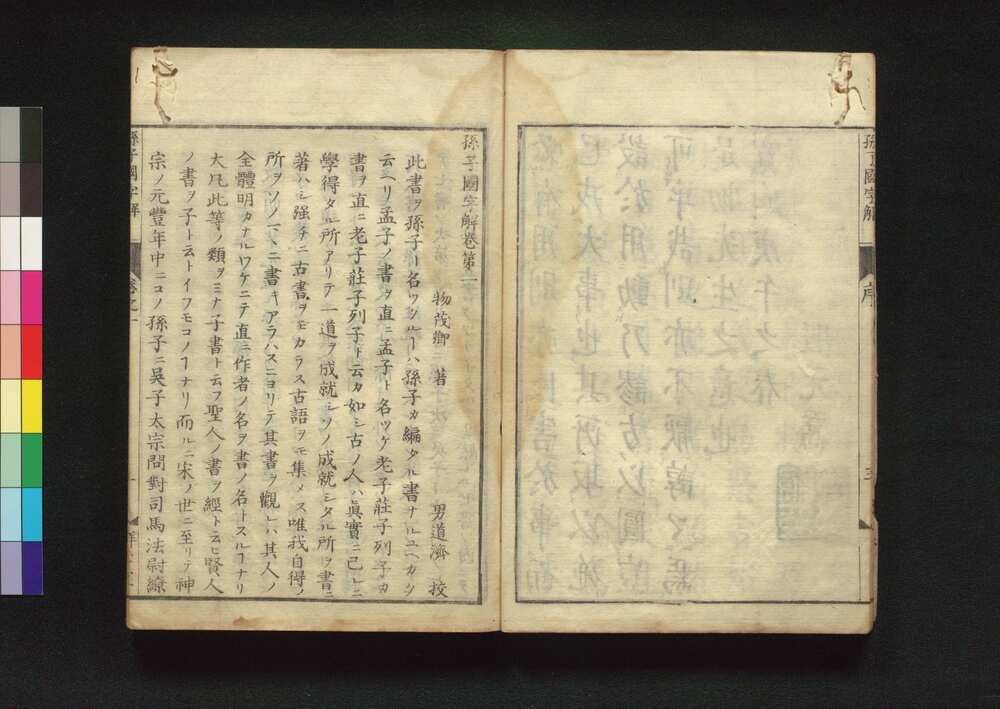 孫子國字解
序
三
孫子國字解巻第一
物茂卿 著 男道濟 挍
此書ヲ孫子ト名ツクルヿハ孫子カ編タル書ナルユヘカク
云ヘリ孟子ノ書ヲ直ニ孟子ト名ツケ老子莊子列子カ
書ヲ直ニ老子莊子列子ト云カ如シ古ノ人ハ眞實ニ己レニ
學得タル所アリテ一道ヲ成就シソノ成就シタル所ヲ書ニ
著ハシ强チニ古書ヲモカラス古語ヲモ集メス唯我自得ノ
所ヲソノマヽニ書キアラハスニヨリテ其書ヲ觀レハ其人ノ
全體明カナルワケニテ直ニ作者ノ名ヲ書ノ名トスルヿナリ
大凡此等ノ類ヲミナ子書ト云フ聖人ノ書ヲ經ト云ヒ賢人
ノ書ヲ子ト云トイフモコノヿナリ而ルニ宋ノ世ニ至リテ神
宗ノ元豐年中ニコノ孫子ニ吳子太宗問對司馬法尉繚
孫子國字解
卷之一
一